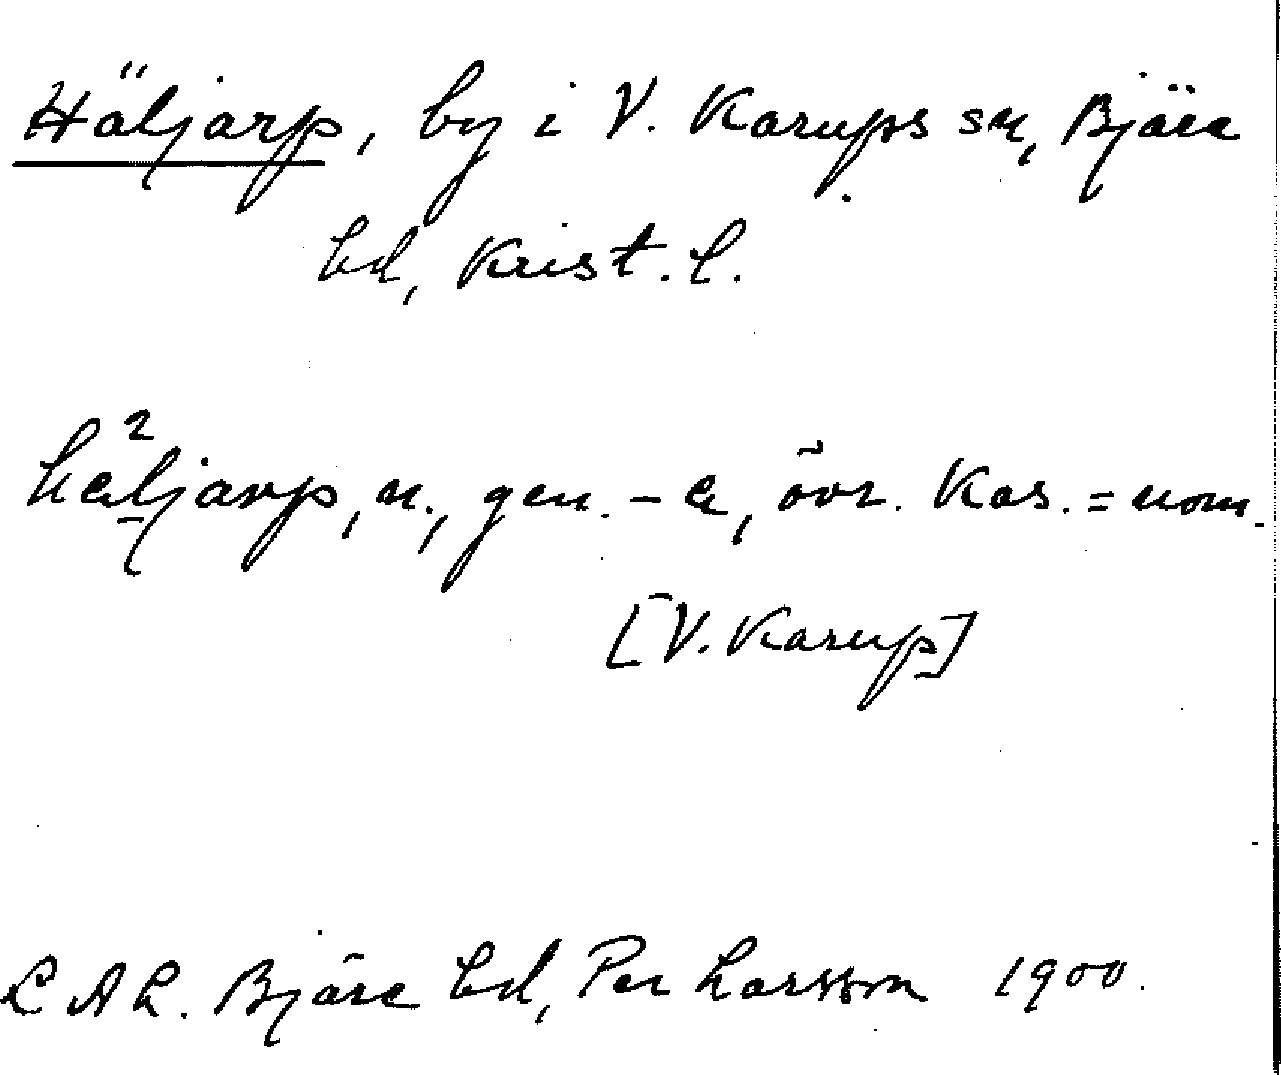 Häljarp, by i V. Karups sn, Bjäre
hd, Krist. l.
hæ²ljarp, n., gen. - a, övr. kas. = nom.
[V. Karup]
LAL. Bjäre hd, Per Larsson 1900.